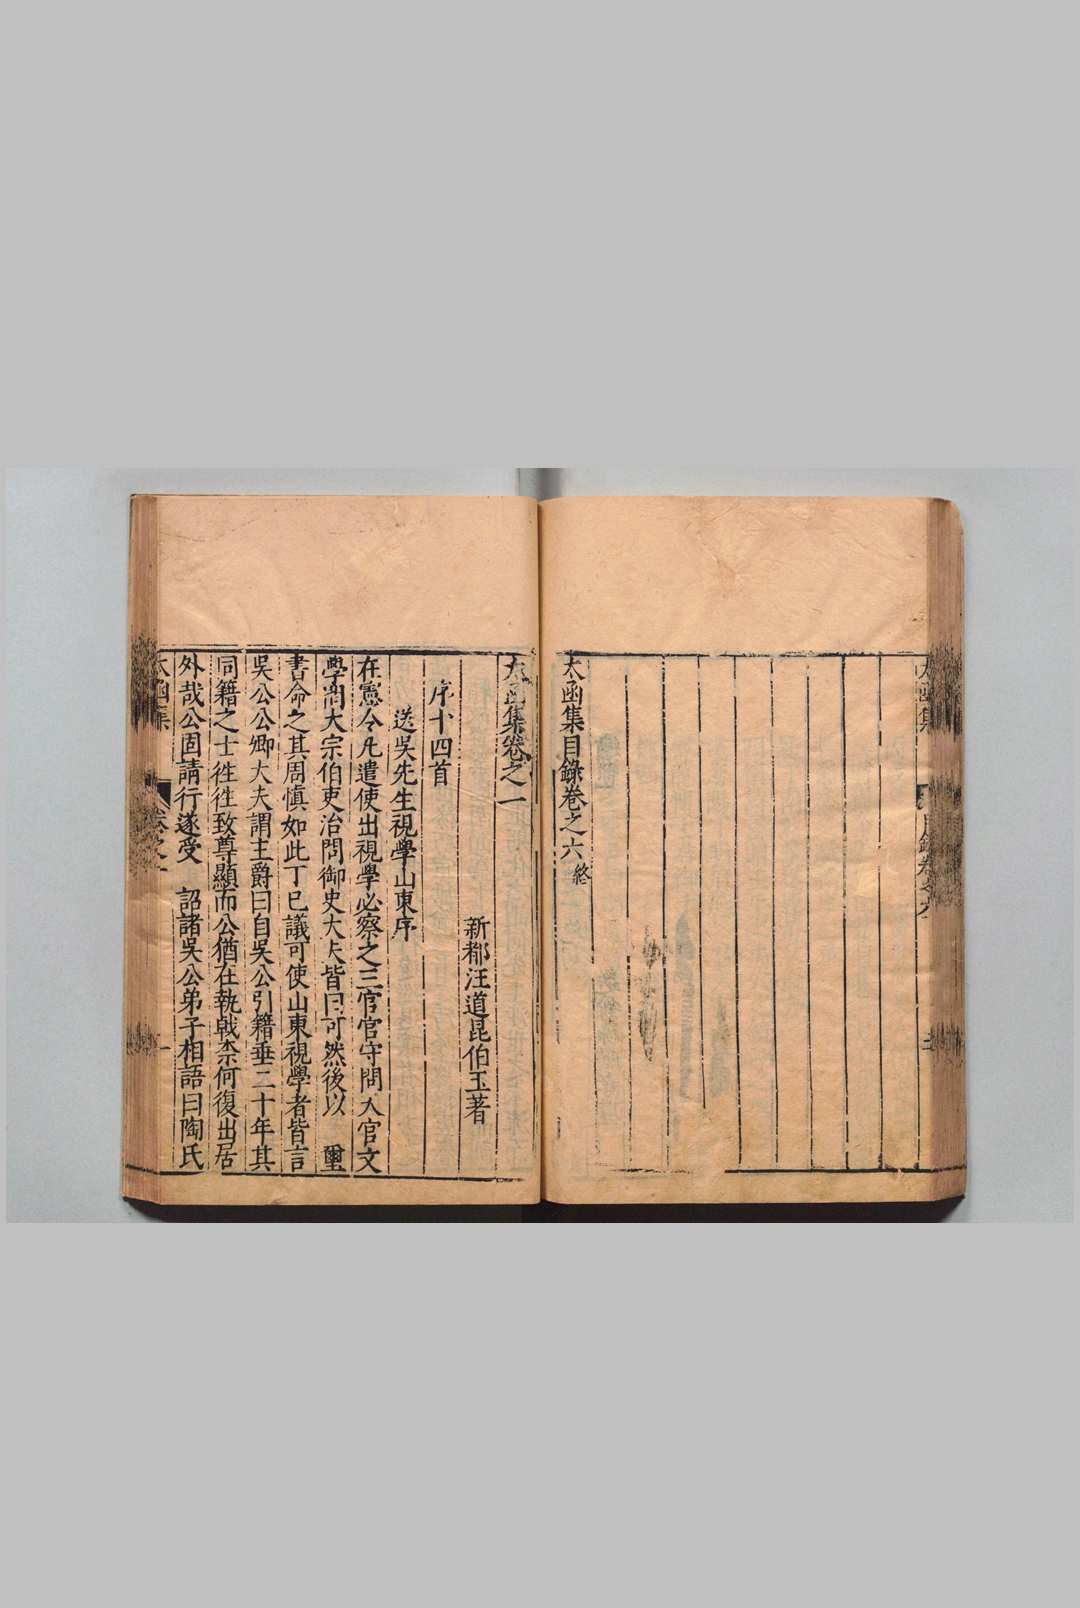 太函集目錄卷之六終
太函集卷之一
新都汪道昆伯玉著
序十四首
送吳先生視學山東序
在憲令凡遣使出視學必察之三官官守問天官文
學問大宗伯吏治問御史大夫皆曰可然後以　璽
書命之其周慎如此丁巳議可使山東視學者皆言
吳公公卿大夫謂主爵曰自吳公引籍垂二十年其
同籍之士徃徃致尊顯而公猶在執戟柰何復出居
外哉公固請行遂受　詔諸吳公弟子相語曰陶氏
太函集
卷之一
一